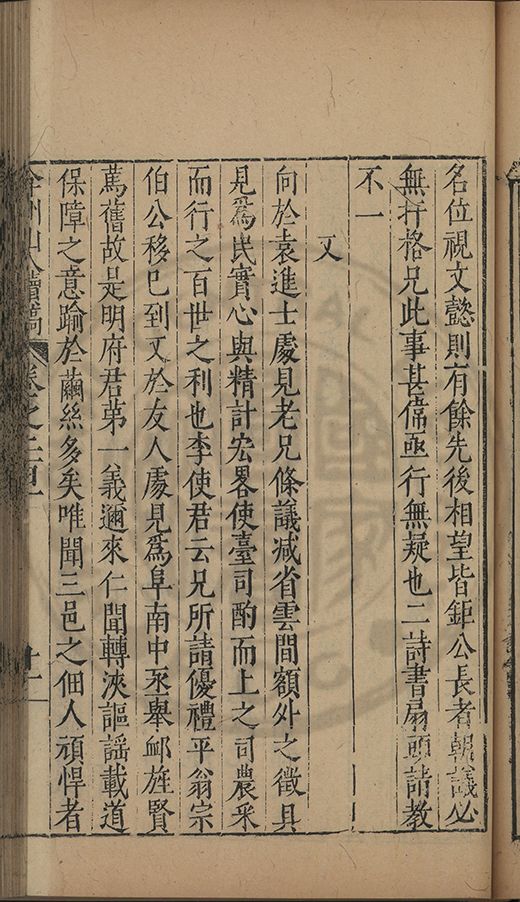 名位視文懿則有餘先後相望皆鉅公長者朝議必
無扞格兄此事甚偹亟行無疑也二詩書扇頭請教
不一
又
向於袁進士處見老兄條議減省雲間額外之徵具
見爲民實心與精計宏畧使臺司酌而上之司農采
而行之百世之利也李使君云兄所請優禮平翁宗
伯公移已到又於友人處見爲阜南中丞舉䘏旌賢
篤舊故是明府君第一義邇來仁聞轉浹謳謡載道
保障之意踰於繭絲多矣唯聞三邑之佃人頑悍者
弇州山人續稿 卷之二百
十二